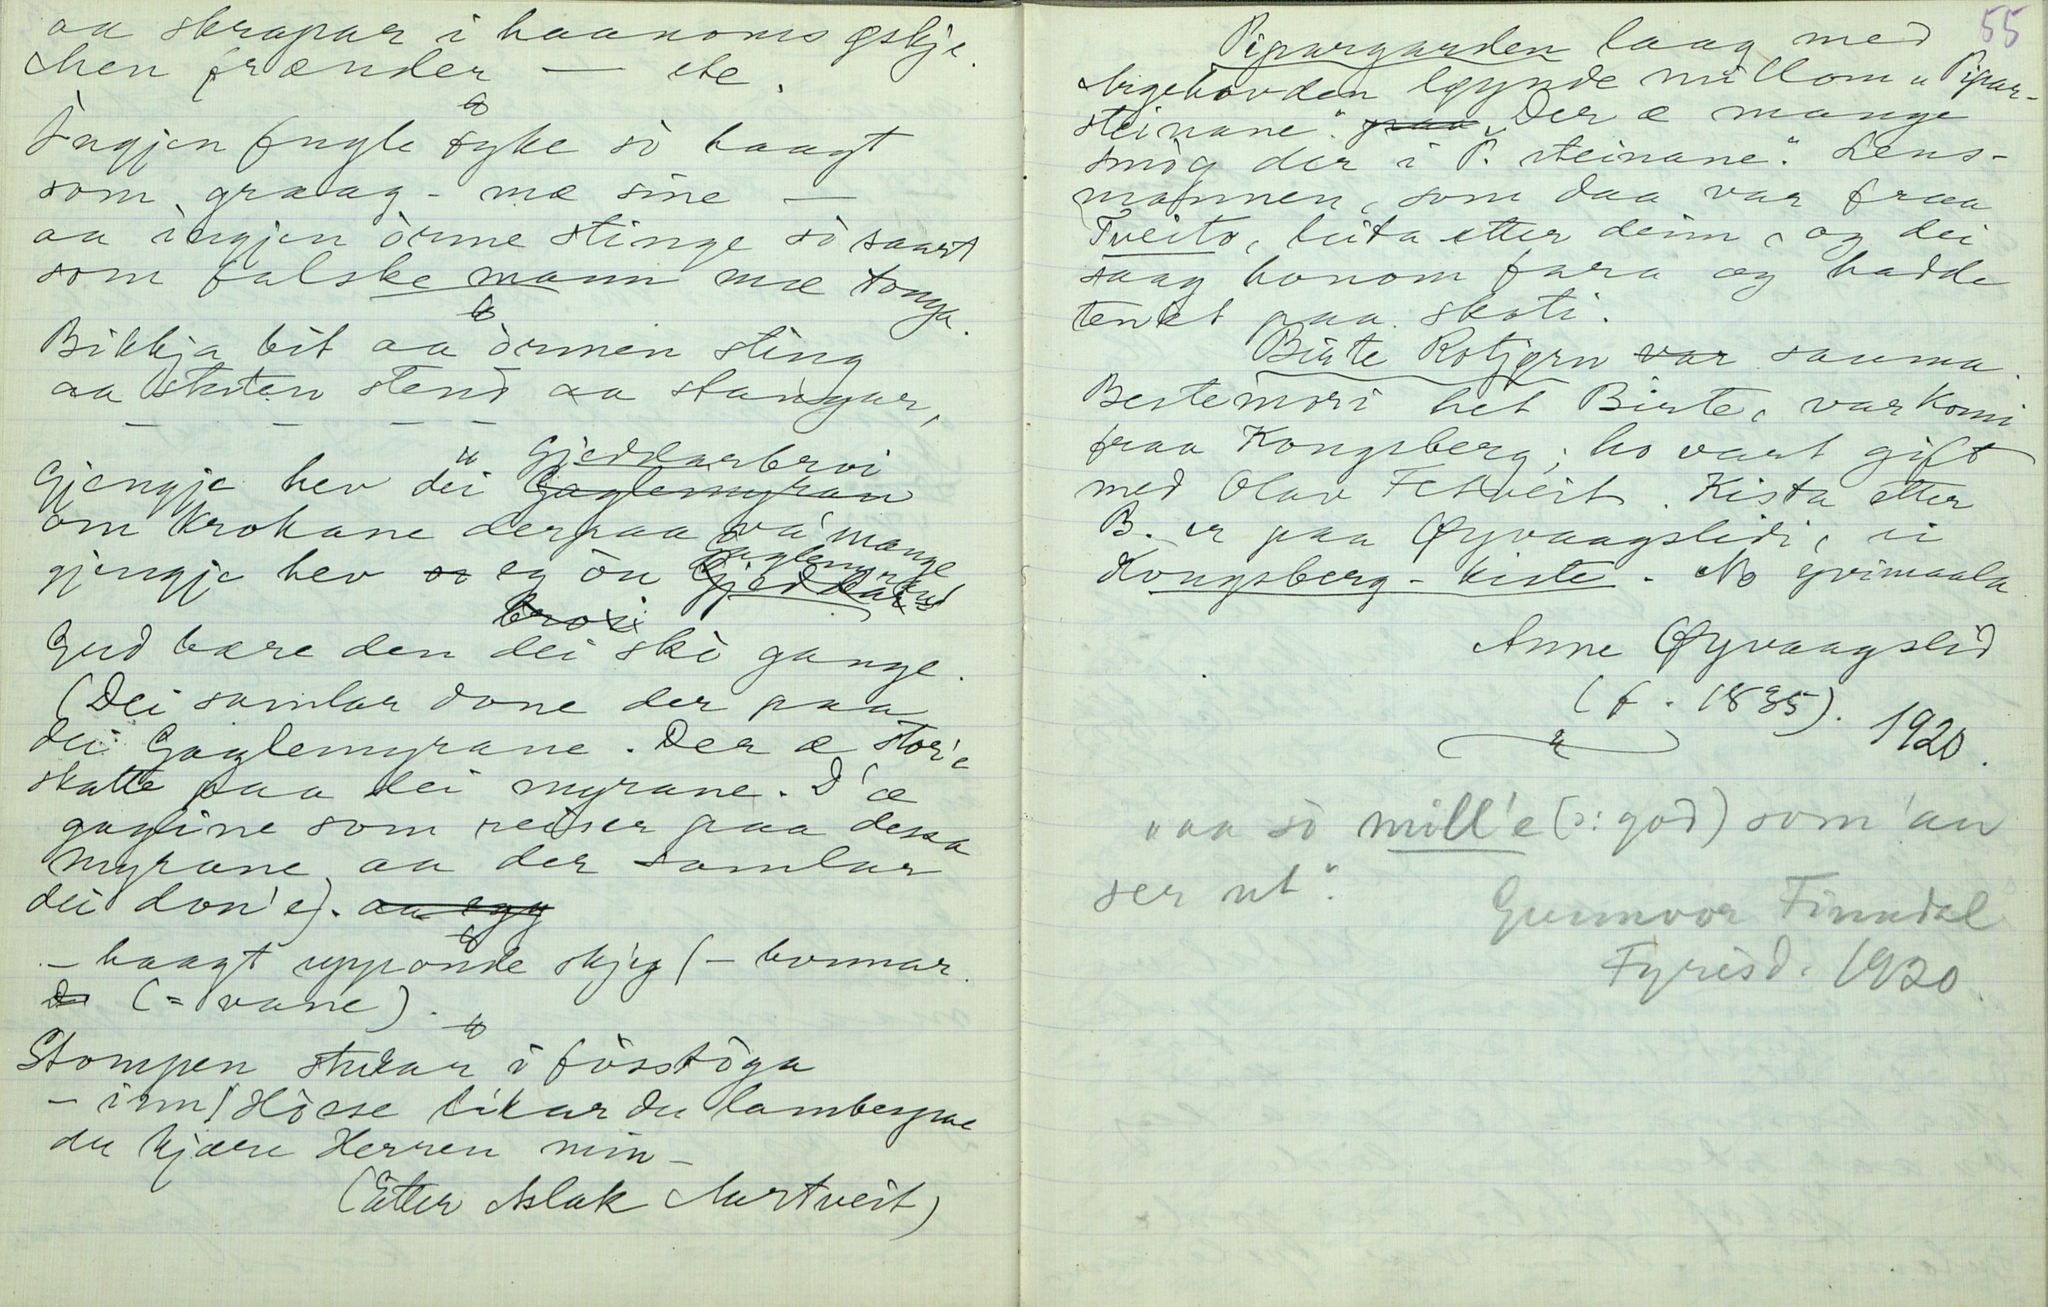 aa skrapar i haanoms øskje.
Men frænder — etc.
Ingjen fugle syke so haagt
som graag - mæ sine —
aa ingjen orme stinge so saart
som falske mann mæ tonga.
Bikkja bit aa ormen sting
aa stuten stend aa stangar,
— — — —
Gjengje hev dei Gjeddarbroi
Gaglemyran
om Krokane derpaa va mange
gjengje hev so eg ou Gaglemyran
Gjeddar
broi
Gud bære den dei ski gange.
(Dei samlar done der paa
dei Gaglemyrane. Der æ stori
skatte paa dei myrane. D'æ
gagline som reiser paa dessa
myrane, aa der samlar
dei don'e). aa egg
– haagt upponde skjeg (– bonnar.
(= vane).
Stompen stukar i fösstoga
– inn / Hosse likar du lambegne
du kjære Herren min –
(Etter Aslak Aartveit)
55
Pipargarden laag med
Mogehovden løynde millom "Pipar-
steinane". paa "Der æ mange
smog der i P. steinane." Lens-
mannen, som daa var fraa
Tveito, leita etter deim, og dei
saag honom fara og hadde
tenkt paa skoti.
Birte Rotjørn var sauma.
Bestemori het Birte, var komi
fraa Kongsberg; ho vart gift
med Olav Fetveit. Kista etter
B. er paa Øyvaagslidi, ei
Kongsberg-kiste. No yvimaala
Anne Øyvaagslid
(f. 1835). 1920.
"aa so mill'e (ɔ: god) som 'an
ser ut".
Gunnvor Finndal
Fyresd. 1920.